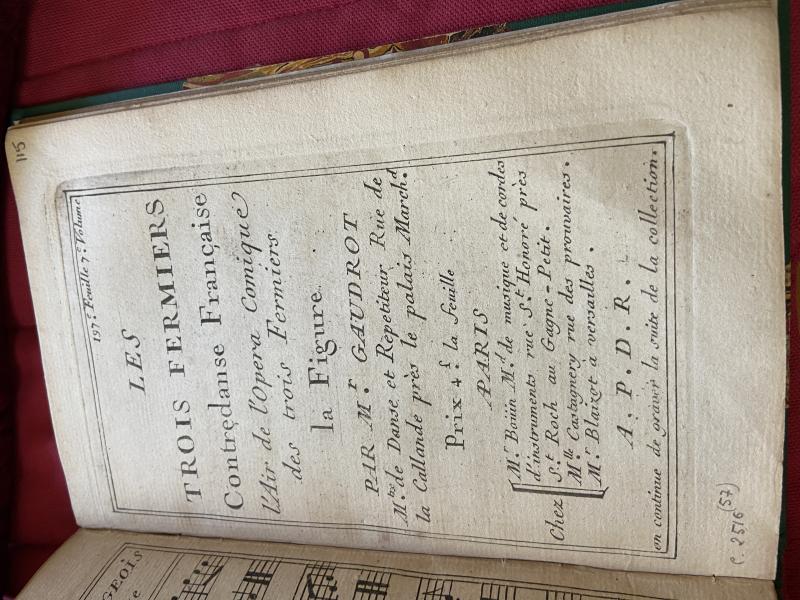 115
197.e Feuille 7.e Volume
LES
TROIS FERMIERS
Contredanse Française
l'Air de l'Opera Comique
des trois Fermiers
la Figure
PAR M.r GAUDROT
M.tre de Danse et Repetiteur Rue de
la Callande près le palais March.d
Prix 4 f la feuille
PARIS
Chez
M.r Boüin M.d de musique et de cordes
d'instruments rue S.t Honoré près
S.t Roch au Gagne-Petit.
M.lle Castagnery rue des prouvaires.
M.r Blaizot à versailles.
A. P. D. R.
on continue de graver la suite de la collection.
c. 2516 (57)
GEOIS
e